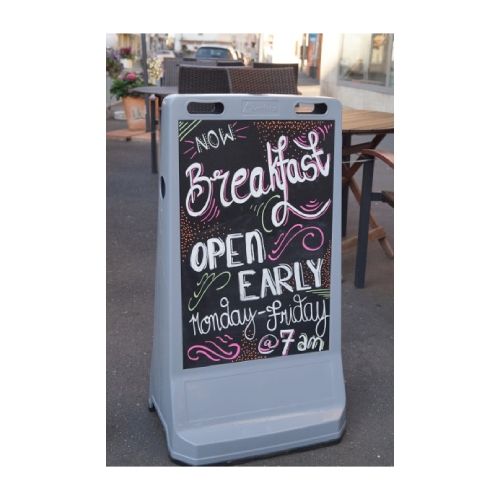 NOW
Breakfast
OPEN
EARLY
Monday-Friday
@ 7 am